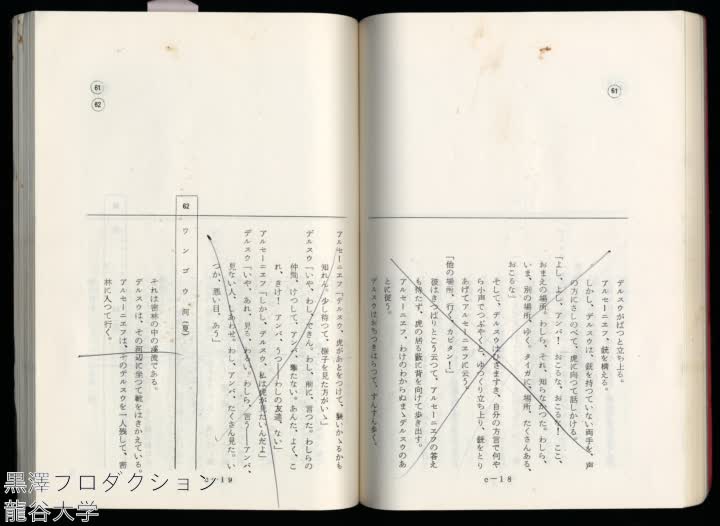 61
デルスウがぱっと立ち上る。
アルセーニエフ、銃を構える。
しかし、デルスウは、銃を持つていない両手を、声
の方にさしのべて、虎に向つて話しかける。
「よし、よし、アンバ！　おこるな、おこるな！　ここ、
おまえの場所。わしら、それ、知らなかつた。わしら、
いま、別の場所、ゆく。タイガに、場所、たくさんある、
おこるな」
そして、デルスウはひざまずき、自分の方言で何や
ら小声でつぶやくと、ゆつくり立ち上り、銃をとり
あげてアルセーニエフに云う。
「他の場所、行く、カピタン！」
彼はきつぱりとこう云つて、アルセーニエフの答え
も待たず、虎の居る藪に背を向けて歩き出す。
アルセーニエフ、わけのわからぬまゝデルスウのあ
とに従う。
デルスウはおちつきはらつて、ずんずん歩く。
c—18
61
62
アルセーニエフ「デルスウ、虎があとをつけて、襲いかゝるかも
知れん。少し待つて、様子を見た方がいゝ」
デルスウ「いや、わし、できん。わし、前に、言つた。わしらの
仲間、けつして、アンバ、撃たない。あんた、よく、こ
れ、きけ！　アンバ、うつ——わしの友達、ない」
アルセーニエフ「しかし、デルスウ、私は虎が見たいんだよ」
デルスウ「いや、あれ、見る、わるい。わしら、言う——アンバ、
見ない人、しあわせ。わし、アンバ、たくさん見た。い
つか、悪い目、あう」
62
ワンゴウ河（夏）
それは密林の中の渓流である。
デルスウは、その河辺に坐つて靴をはきかえている。
アルセーニエフは、そのデルスウを一人残して、密
林に入つて行く。
c—19
黒澤プロダクション
龍谷大学